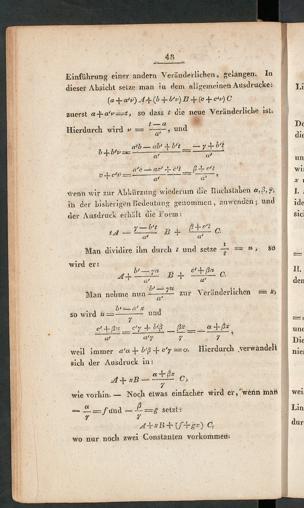 48
Einführung einer andern Veränderlichen, gelangen. In
dieser Absicht setze man in dem allgemeinen Ausdrucke:
(a + a'v) A + (b + b'v) B + (c + c'v) C
zuerst a + a'v = t, so dass t die neue Veränderliche ist.
Hierdurch wird v = (t − a)/a', und
b + b'v = (a'b − ab' + b't)/a' = (− γ + b't)/a'
c + c'v = (a'c − ac' + c't)/a' = (β + c't)/a',
wenn wir zur Abkürzung wiederum die Buchstaben α, β, γ,
in der bisherigen Bedeutung genommen, anwenden; und
der Ausdruck erhält die Form:
tA = B + (β + c't)/a' C.
Man dividire ihn durch t und setze 1/t = u, so
wird er:
A + (b' − γu)/a' B + (c' + βu)/a' C.
Man nehme nun (b' − γu)/a' zur Veränderlichen = z,
so wird u = (b' − a'z)/γ und
(c' + βu)/a' = (c'γ + b'β)/a'γ − βz/γ = − (α + βz)/γ,
weil immer a'α + b'β + c'γ = o. Hierdurch verwandelt
sich der Ausdruck in:
A + zB − (α + βz)/γ C,
wie vorhin. — Noch etwas einfacher wird er, wenn man
− α/γ = f und − β/γ = g setzt:
A + zB + (f + gz) C,
wo nur noch zwei Constanten vorkommen.